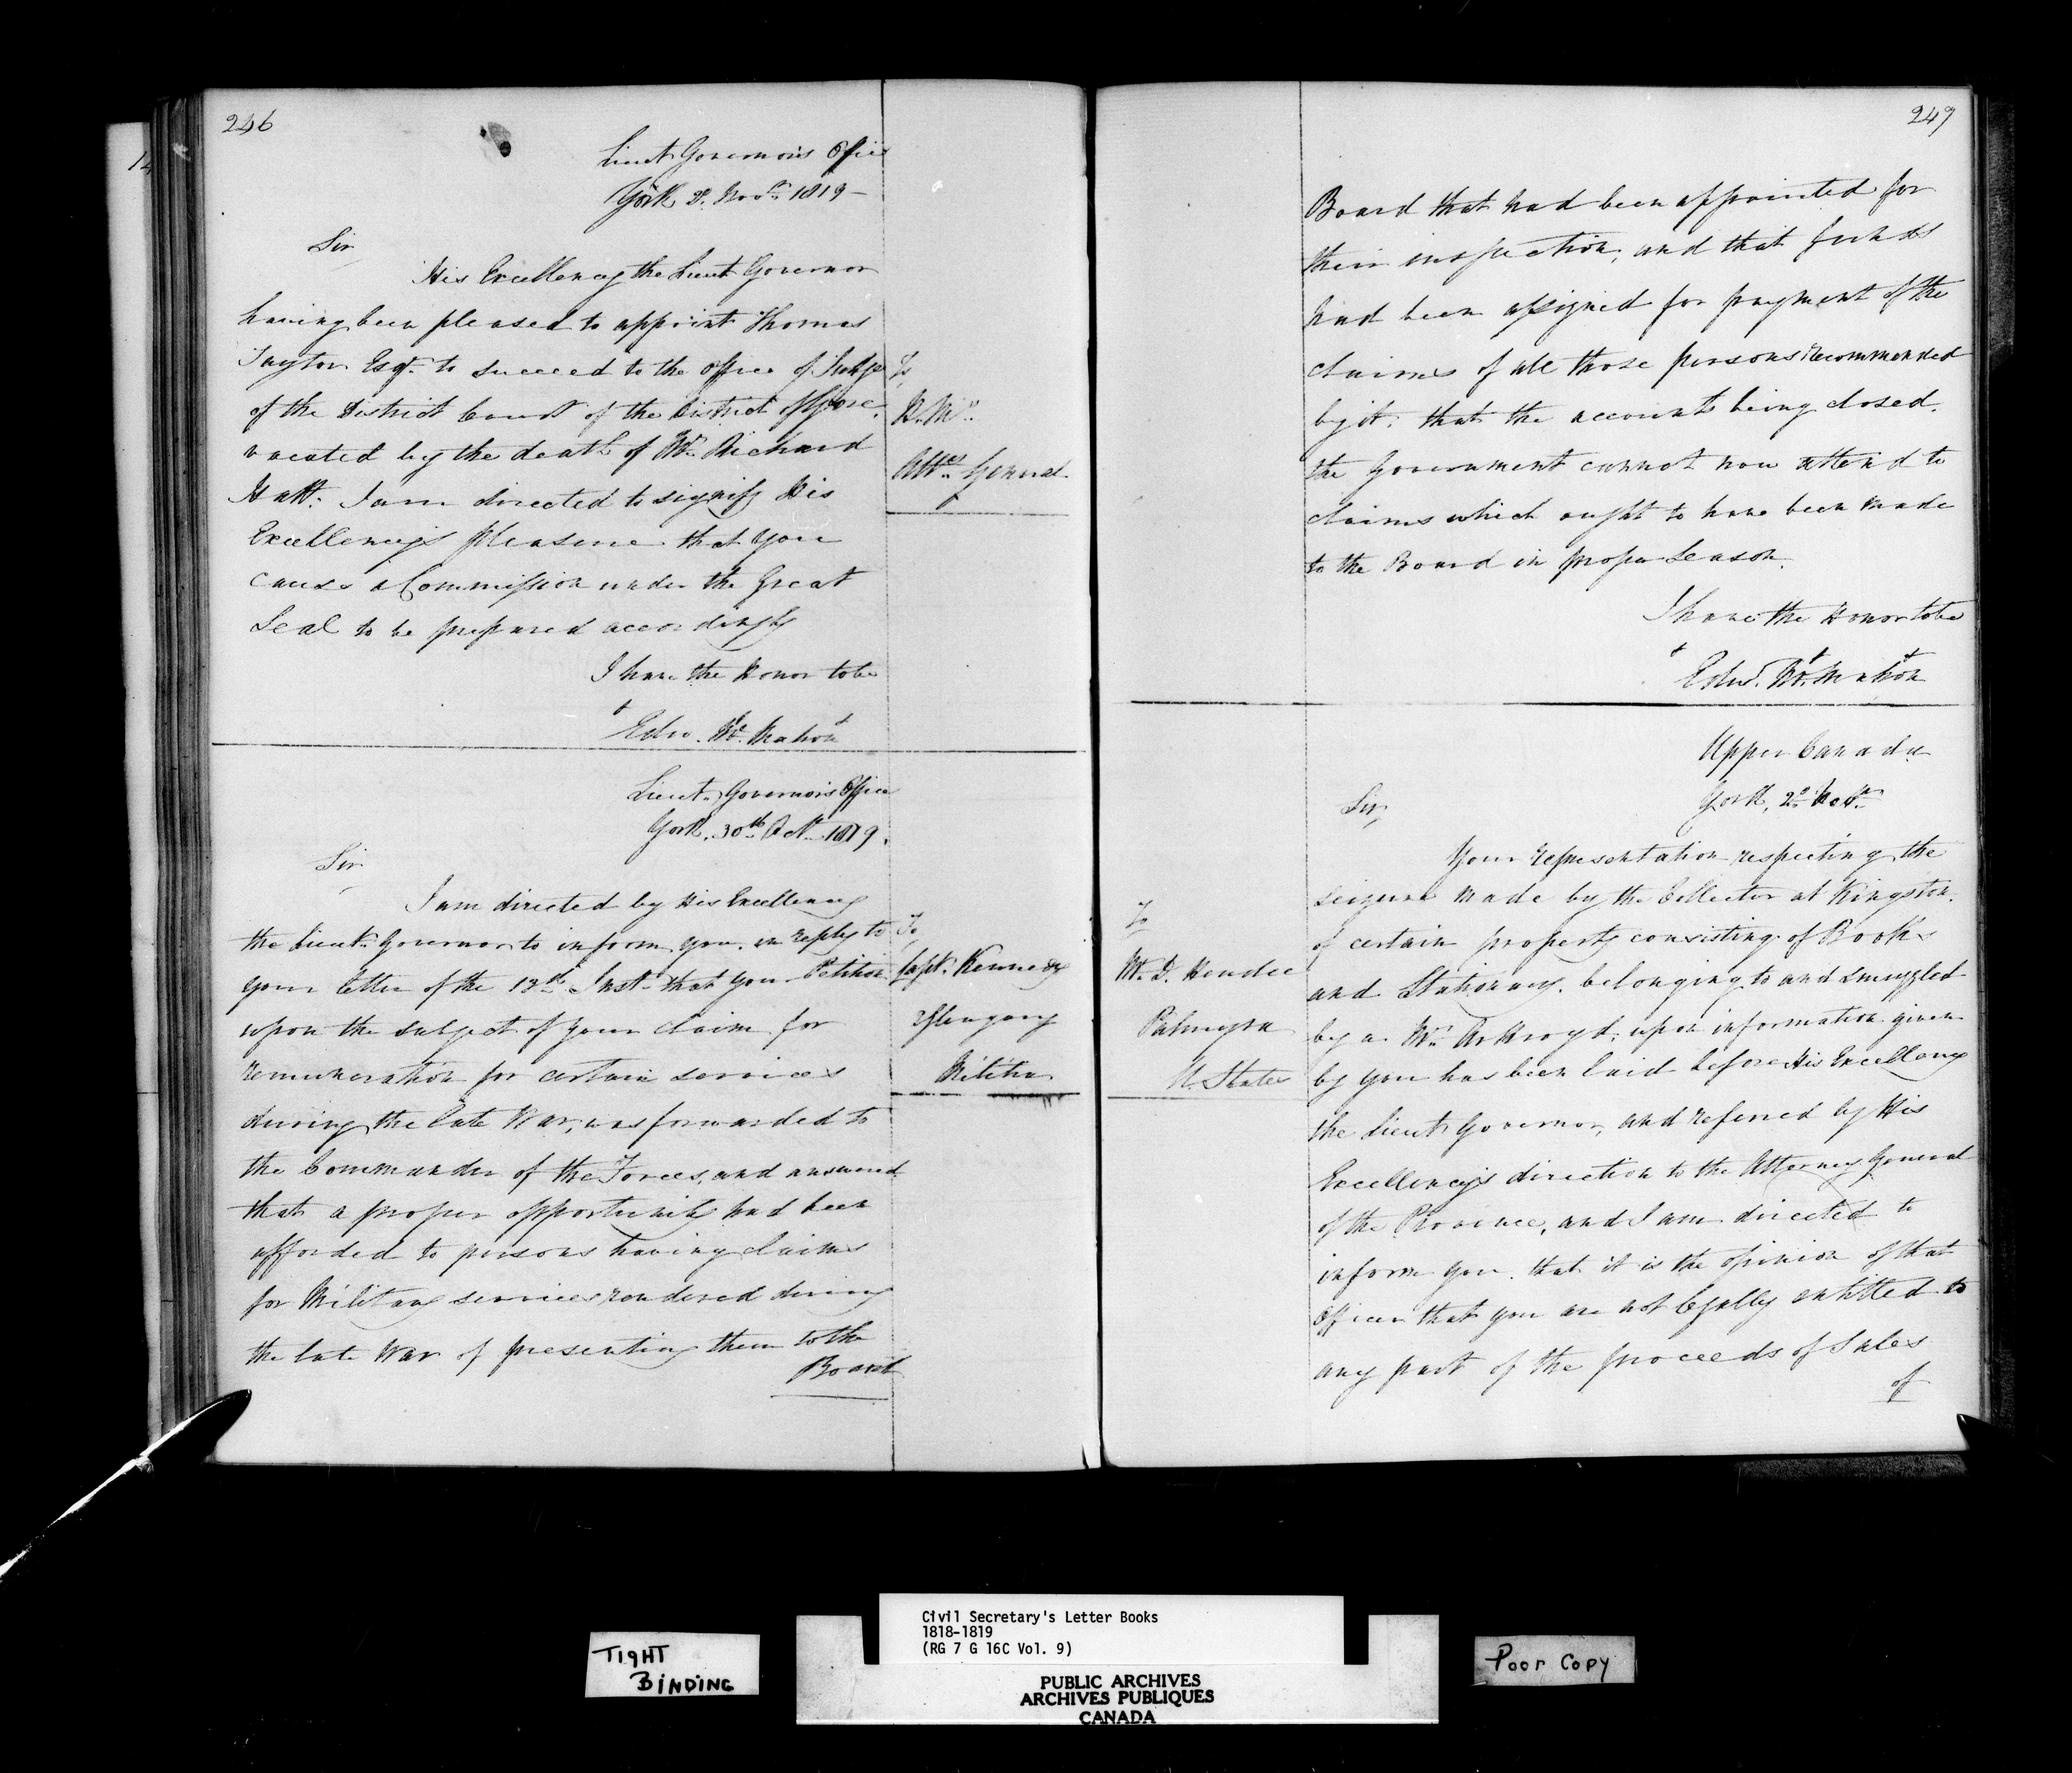 246
Lieut Governor's Office
York 2. Novr. 1819 —
Sir
His Excellency the Lieut Governor
having been pleased to appoint Thomas
Taylor Esqr. to succeed to the Office of Judge
of the District Court of the District of Gore,
vacated by the death of Mr. Richard
Hatt. I am directed to signify His
Excellency's pleasure that you
cause a Commission under the Great
Seal to be prepared accordingly
I have the Honor to be
Edw. Mc. Mahon
To
H. M's.
Atty. General
Lieut. Governor's Office
York, 30th. Oct. 1819.
Sir
I am directed by His Excellency
the Lieut. Governor to inform you, in reply to
your letter of the Inst. that your Petition
upon the subject of your claim for
remuneration for certain services
during the late War, was forwarded to
the Commander of the Forces, and answered
that a proper opportunity had been
afforded to persons having claims
for Military services rendered during
the late War of presenting them to the
Board
To,
Capt. Kennedy
Glengary
Militia
249
Board that had been appointed for
their inspection, and that funds
had been assigned for payment of the
claims of all those persons recommended
by it; that the accounts being closed.
the Government cannot now attend to
claims which ought to have been made
to the Board in proper Season.
I have the Honor to be
Edwd. Mc. Mahon
Upper Canada
York, 2d. Novr.
Sir,
Your representation respecting the
seizure made by the Collector at Kingston.
of certain property consisting of Books
and Stationary. belonging to and smuggled
by a Mr. upon information given
by you has been laid before His Excellency
the Lieut Governor, and referred by His
Excellency's direction to the Attorney General
of the Province, and I am directed to
inform you. that it is the opinion of that
Officer that you are not legally entitled to
any part of the proceeds of Sales
of
To
Mr. D. Hendee
Palmyra
U. States
TIGHT
BINDING
Civil Secretary's Letter Books
1818-1819
(RG 7 G 16C Vol. 9)
PUBLIC ARCHIVES
ARCHIVES PUBLIQUES
CANADA
Poor Copy